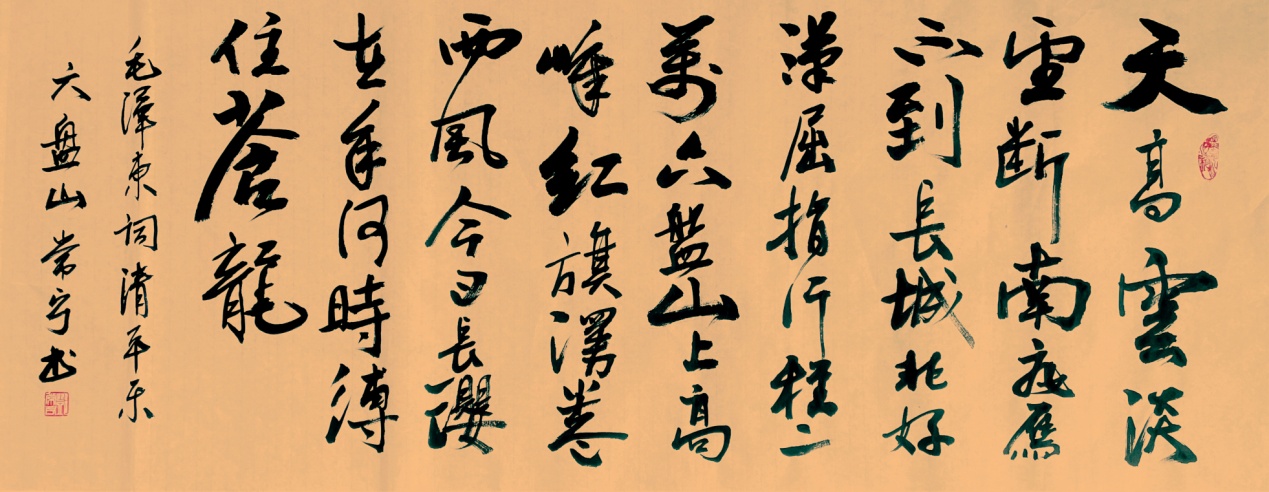 天高雲淡
望断南飛雁
不到長城非好
漢屈指行程二
萬六盤山上高
峰紅旗漫卷
西風今日長纓
在手何時縛
住蒼龍
毛澤東詞清平乐
六盤山常宁书